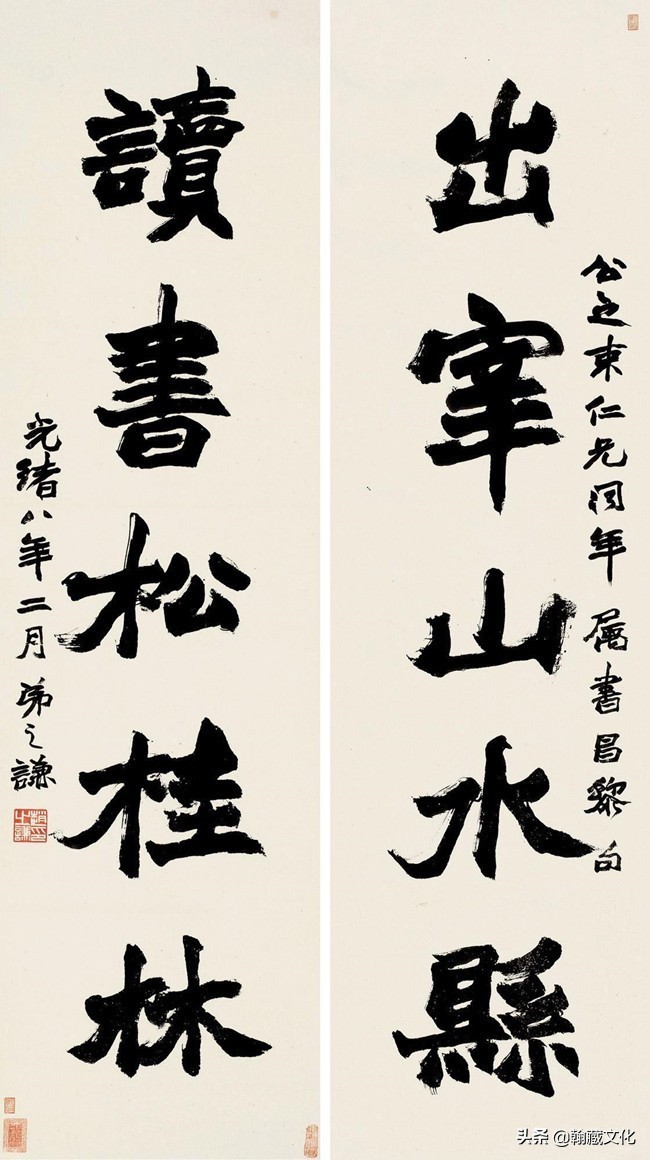 公仁兄同年 属書昌黎句
出宰山水縣
讀書松桂林
光緒八年二月 弟之謙
头条 @翰藏文化